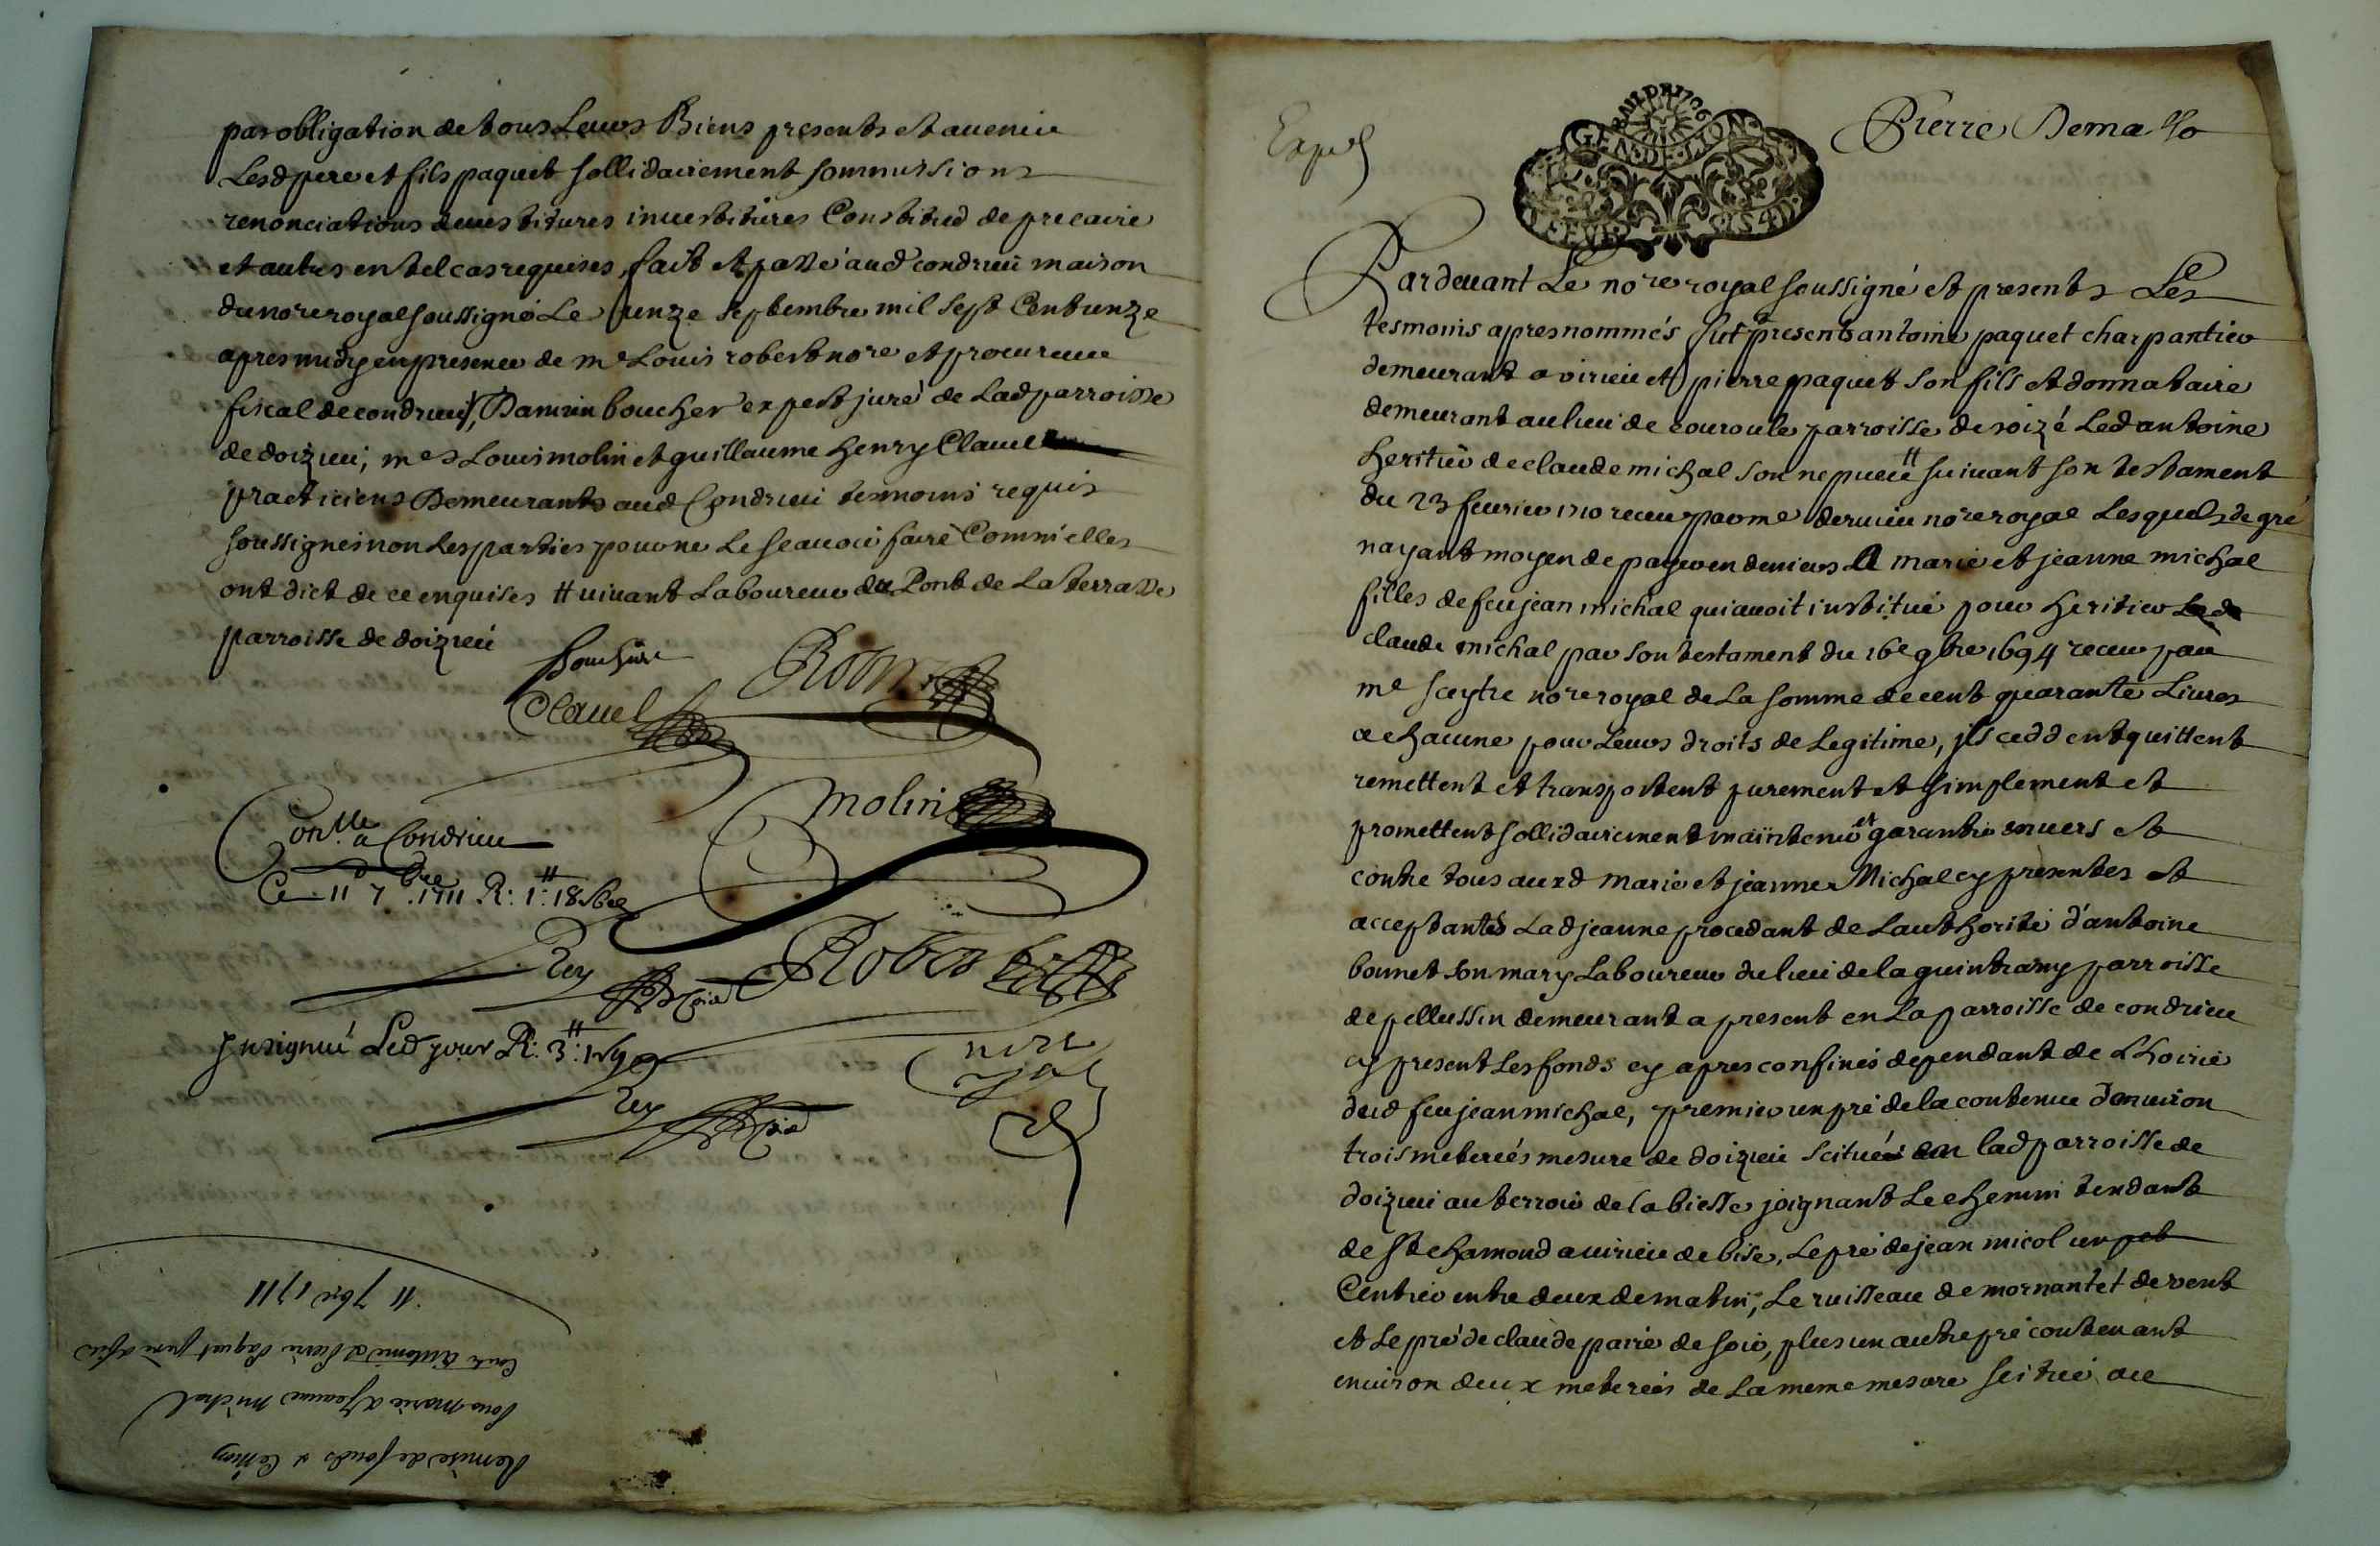 par obligation de tous Leurs Biens presents et auenir
Lesd pere et fils paquet sollidairement soummissions
renonciations deuestitures inuestitures Constitud de precaire
et autres en tel cas requises, fait et passé aud condrieu maison
du nore royal soussigné Le unze septembre mil sept Cent unze
apres midy en presence de me Louis robert nore et procureur
fiscal de condrieu, Damien boucher expert juré de Lad parroisse
de doizieu, mes Louis molin et guillaume henry Clauel
practiciens Demeurants aud Condrieu tesmoins requis
soussignés non Les parties pour ne Le scauoir faire Comm'elles
ont dict de ce enquises # uiuant Laboureur du Pont de La terrasse
parroisse de doizieu
bouchier
Clauel
molin
Conlle a Condrieu
Ce 11 7bre 1711 R: 1# 18s
Rey
Robert
Insignué Led jour R: 3#
Rey
nore
royal
11 7bre 1711
Contre Antoine et Pierre Paquet pere et fils
Pour Marie et Jeanne Michal
Remise de fonds
Exped
GEN·DE·LION
Pierre Dema
Pardeuant Le nore royal soussigné et presents Les
tesmoins apres nommés fut presents antoine paquet charpantier
demeurant a virieu et pierre paquet son fils et donnataire
demeurant au lieu de couroule parroisse de roizé Led antoine
heritier de claude michal son nepueu # suiuant son testament
du 23 feurier 1710 receu par me deruieu nore royal Lesquels de gré
nayant moyen de payer en deniers A marie et jeanne michal
filles de feu jean michal qui auoit institué pour heritier Led
claude michal par son testament du 16e 9bre 1694 receu par
me sceytre nore royal de La somme de cent quarante Liures
a chacune pour Leurs droits de Legitime, jls ceddent quittent
remettent et transportent purement et simplement et
promettent sollidairement maintenir et garantir enuers et
contre tous auxd marie et jeanne Michal cy presentes et
acceptantes Lad jeanne procedant de Lauthorité d'antoine
bonnet son mary Laboureur du lieu de la guintrany parroisse
de pellussin demeurant a present en La parroisse de condrieu
cy present Les fonds cy apres confinés dependant de Lhoirie
dud feu jean michal, premier un pré de la contenue denuiron
trois meterées mesure de doizieu scitué en lad parroisse de
doizieu au terroir de la biesse joignant Le chemin tendant
de st chamond a uirieu de bise, Le pré de jean micol un pet
Centier entre deux de matin, Le ruisseau de mornantet de vent
et Le pré de claude parie de soir, plus un autre pré contenant
enuiron deux meterées de La meme mesure scitué au